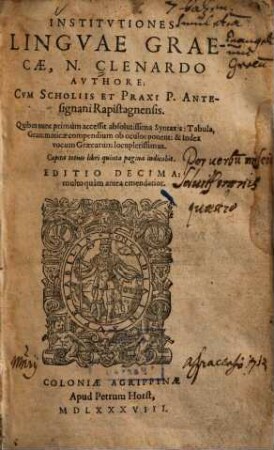 INSTITVTIONES
LINGVAE GRAE-
CÆ, N. CLENARDO
AVTHORE:
CVM SCHOLIIS ET PRAXI P. ANTE-
signani Rapistagnensis.
Quibus nunc primùm accessit absolutissima Syntaxis: Tabula,
Grammaticæ compendium ob oculos ponens: & Index
vocum Græcarum locupletissimus.
Capita totius libri quinta pagina indicabit.
EDITIO DECIMA:
multo quàm antea emendatior.
COLONIÆ AGRIPPINÆ
Apud Petrum Horst,
MDLXXXVIII.